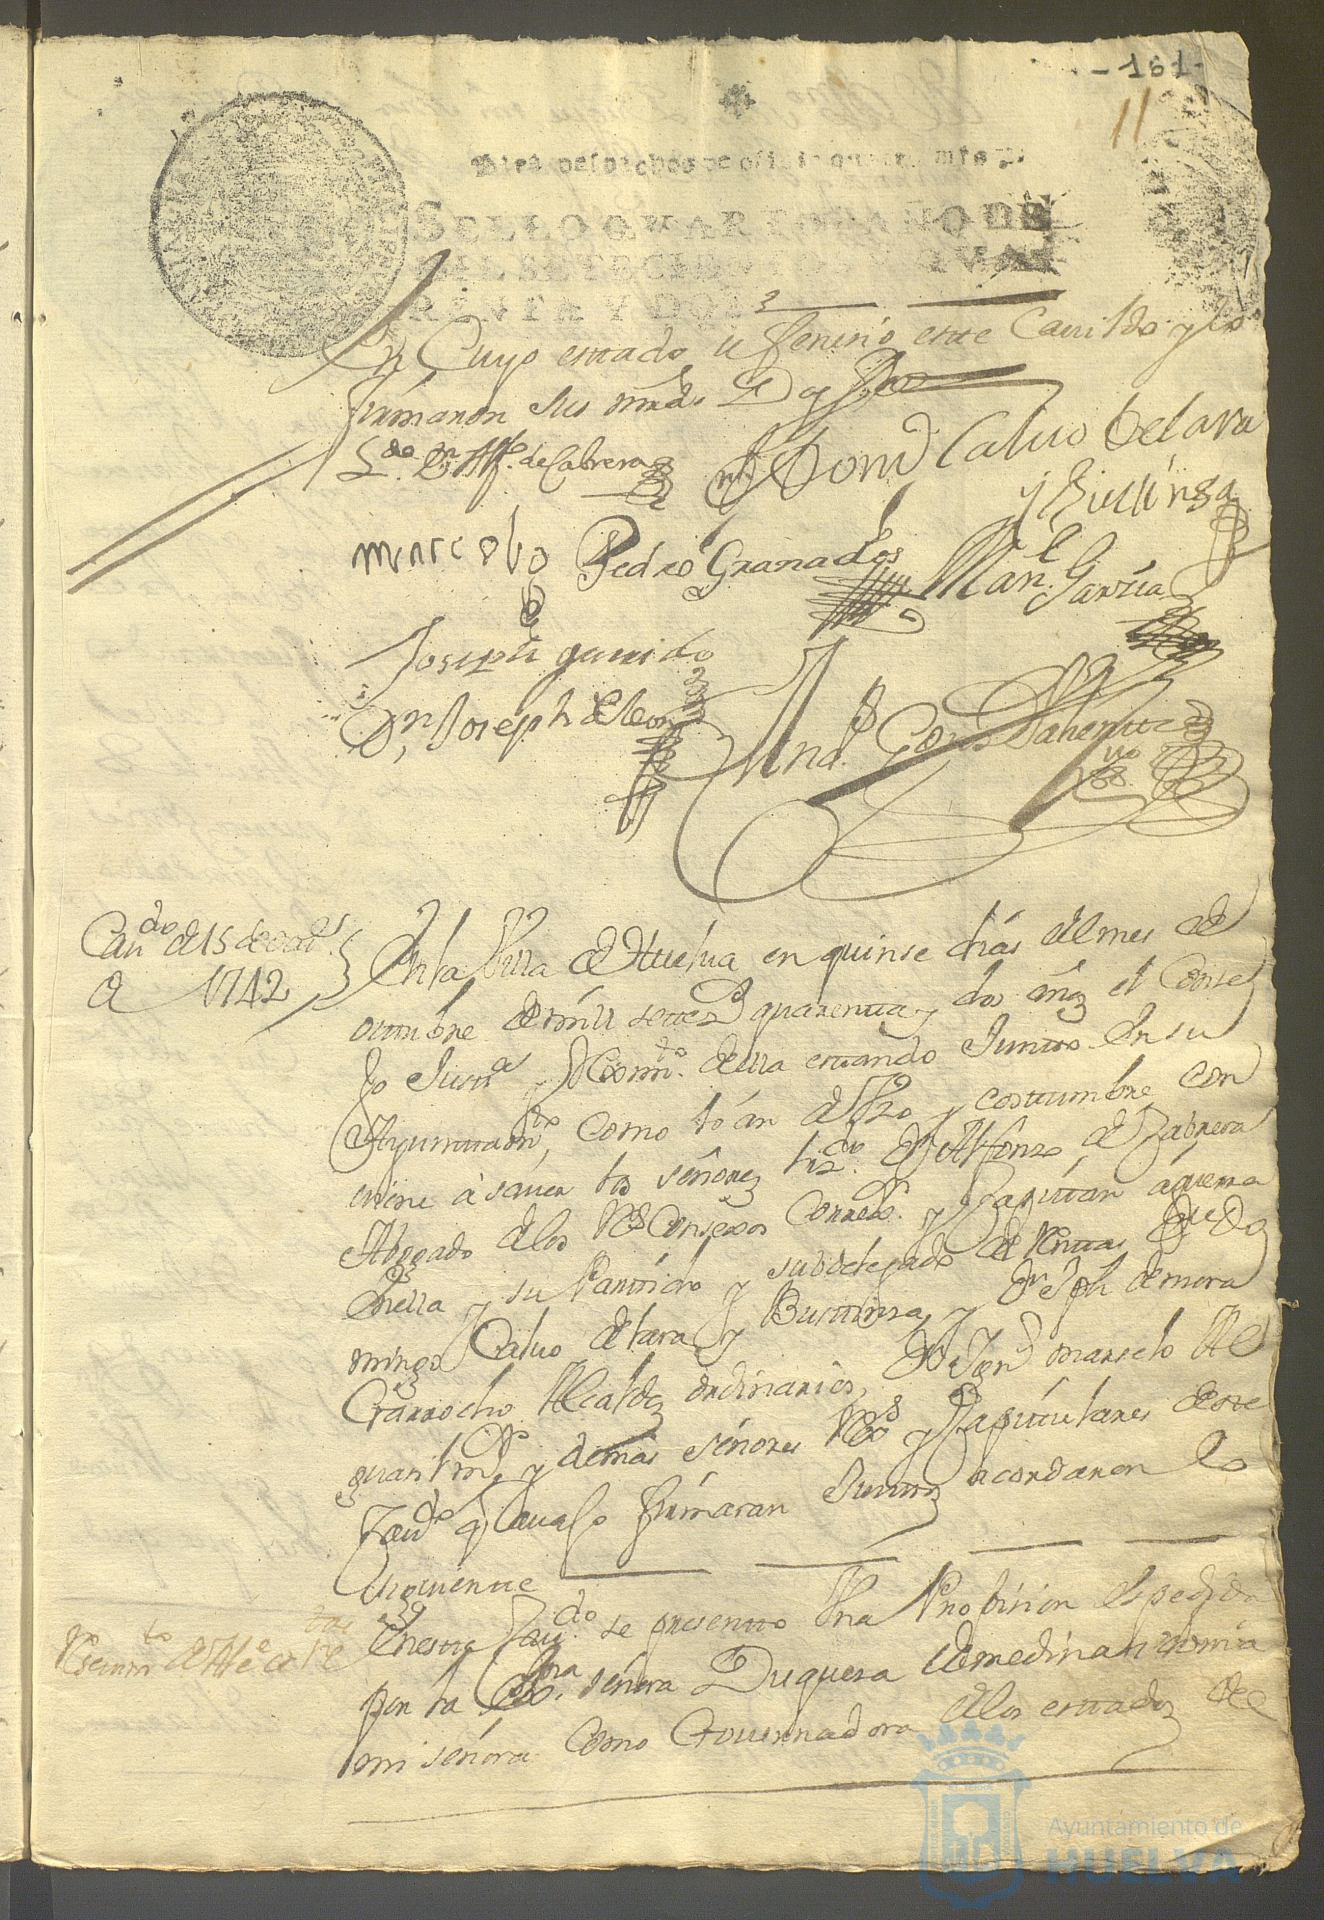 -161-
11
Para despachos de oficio quatro mrs
SELLO QVARTO, AÑO DE
MIL SETECIENTOS Y QVA
RENTA Y DOS
En Cuyo estado se feneció este Cauildo y lo
firmaron sus mrds. Doy fee
Ldo. Dn. Alfo. de Cabrera
Domo. Caluo de Lara
y Bustinza
Pedro Granados
Man.l Garcia
Joseph garrido
Dn. Joseph de leon
And.
Caudo. de 15 de octe.
de 1742
En la Villa de Huelua en quinse dias del mes de
octubre de mill setecs. quarenta y dos años el Conse
jo Justa. y Reximto. della estando Juntos en su
Ayuntamto. como lo án de Vzo y costumbre con
uiene à sauer los señores lizdo. Dn. Alfonso de Cabrera
Abogado de los Rs. Consexos Correxor. y Capitan àguerra
en ella y su Partido y subdelegado de rentas Dn. Do
mingo Caluo de lara y Bustinza, y Dn. Jph. de mora
Garrocho Alcaldes ordinarios, Dn. marselo Al
guasil mr. y demás señores Rexs. y Capitulares deste
Caudo. q abaxo firmaran Juntos acordaron lo
siguiente
En este Caudo. se presento Una Probision Espedida
por la Exma. señora Duquesa de medina sidonia
mi señora como Gouernadora de los estados de
Ayuntamiento de
HUELVA